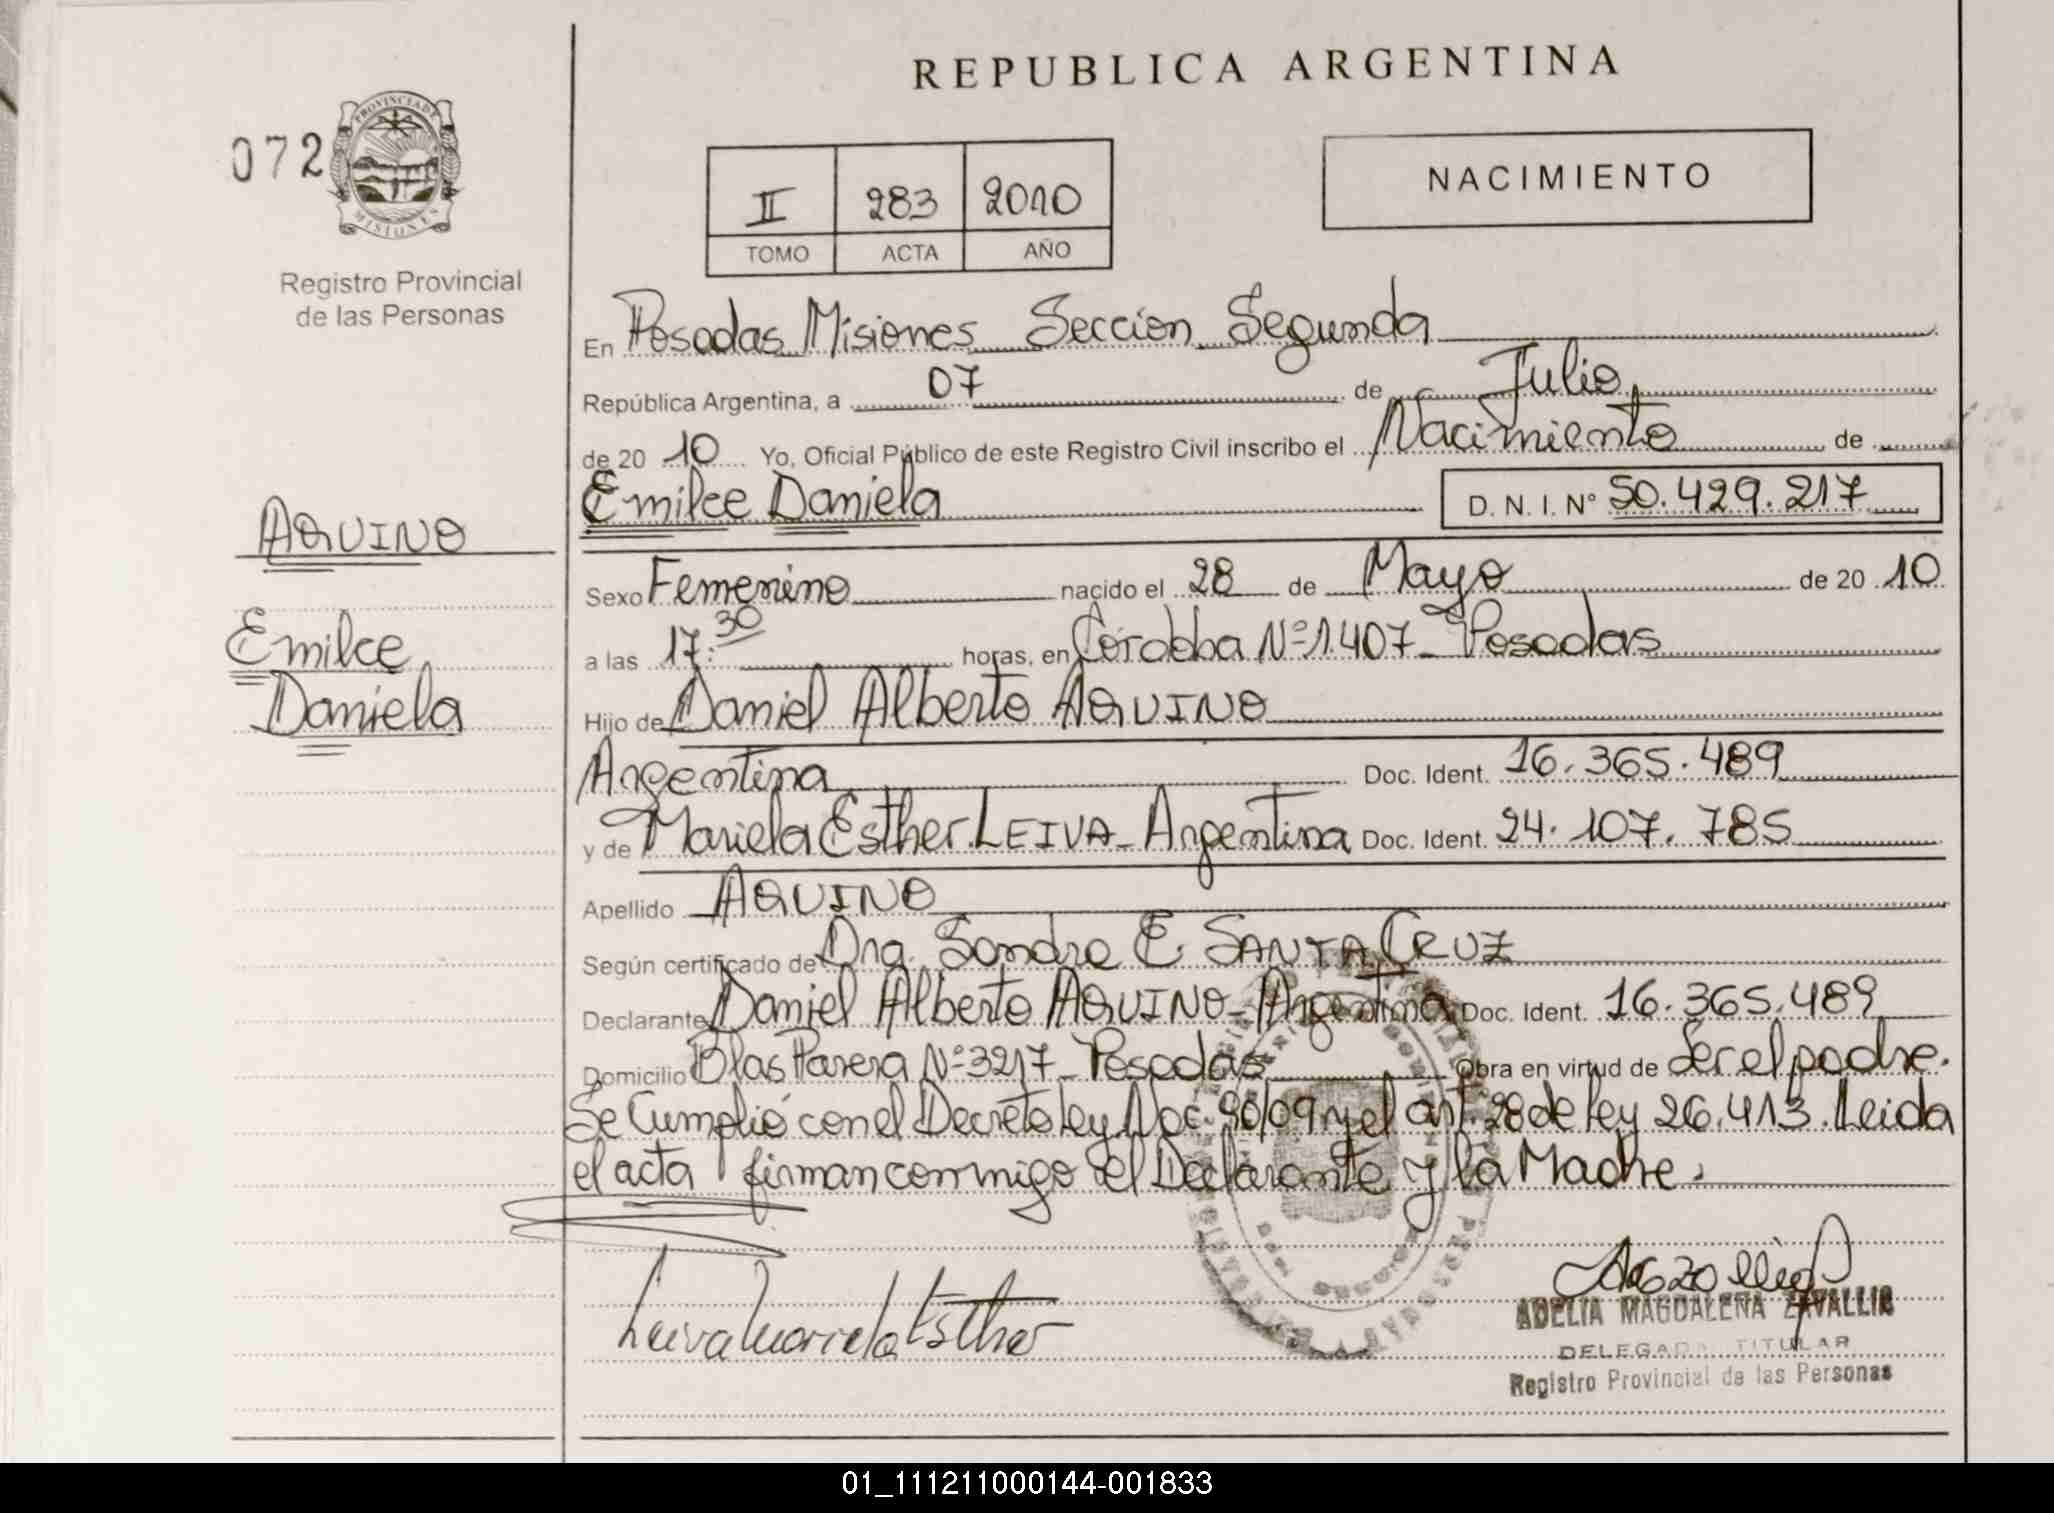 REPUBLICA ARGENTINA
072
PROVINCIA DE
MISIONES
Registro Provincial
de las Personas
II 283 2010
TOMO ACTA AÑO
NACIMIENTO
En Posadas Misiones Seccion Segunda
República Argentina, a 07 de Julio
de 20 10 Yo, Oficial Público de este Registro Civil inscribo el Nacimiento de
Emilce Daniela D. N. I. N° 50.429.217
AQUINO
Emilce
Daniela
Sexo Femenino nacido el 28 de Mayo de 20 10
a las 17:30 horas, en Córdoba Nº 1407- Posadas
Hijo de Daniel Alberto AQUINO
Argentina Doc. Ident. 16.365.489
y de Mariela Esther LEIVA- Argentina Doc. Ident. 24.107.785
Apellido AQUINO
Según certificado de Dra. Sandra E. SANTA CRUZ
Declarante Daniel Alberto AQUINO- Argentina Doc. Ident. 16.365.489
Domicilio Blas Parera Nº 3217- Posadas Obra en virtud de Ser el padre.
Se Cumplió con el Decreto Ley Nac. 90/09 y el art. 28 de Ley 26.413. Leida
el acta firman conmigo el Declarante y la Madre.
Leiva Mariela Esther
ADELIA MAGDALENA ZAVALLIA
DELEGADA TITULAR
Registro Provincial de las Personas
01_111211000144-001833